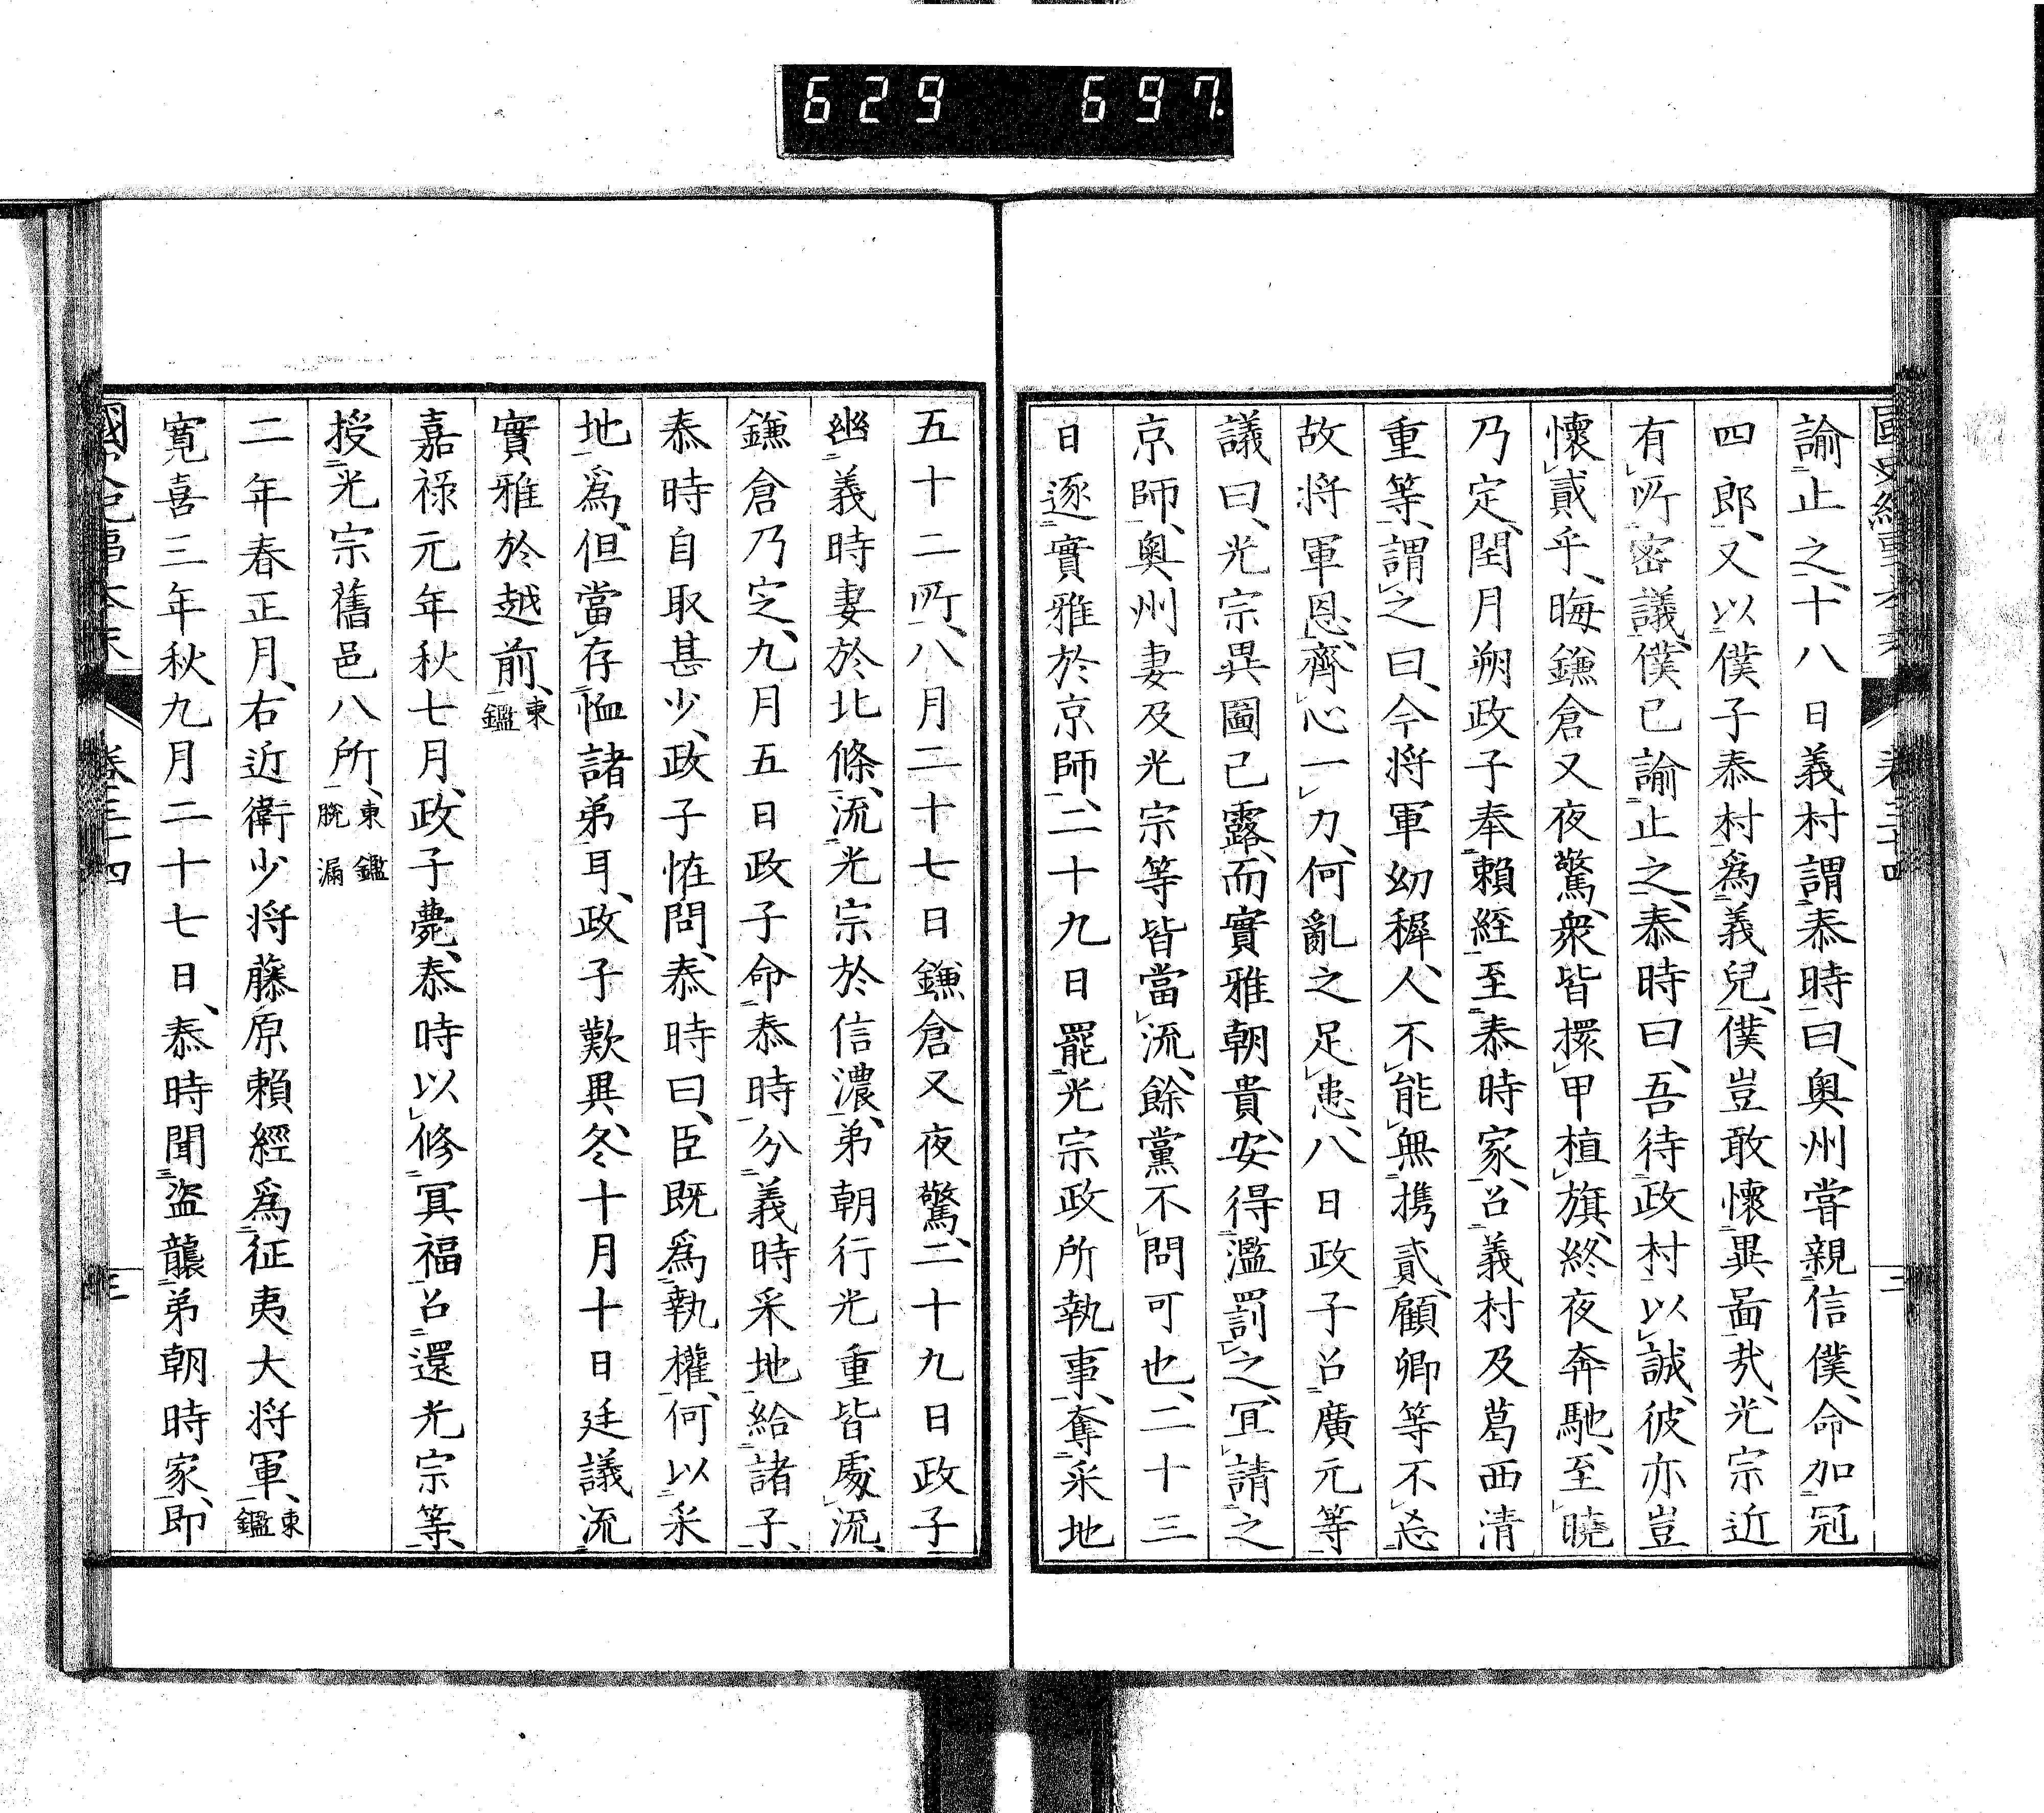 629 697.
諭止之、十八日義村謂泰時曰、奥州嘗親信僕、命加冠
四郎、又以僕子泰村爲義兒、僕豈敢懷異啚㢤、光宗近
有所密議、僕已諭止之、泰時曰、吾待政村以誠、彼亦豈
懷貳乎、晦鎌倉又夜驚、衆皆擐甲植旗、終夜奔馳、至曉
乃定、閏月朔政子奉賴經至泰時家、召義村及葛西清
重等、謂之曰、今将軍幼穉、人不能無携貳、顧卿等不忘
故将軍恩、齊心一力、何亂之足患、八日政子召廣元等
議曰、光宗異圖已露、而實雅朝貴、安得濫罰之、冝請之
京師、奥州妻及光宗等皆當流、餘黨不問可也、二十三
日逐實雅於京師、二十九日罷光宗政所執事、奪采地
五十二所、八月二十七日鎌倉又夜驚、二十九日政子
幽義時妻於北條、流光宗於信濃、弟朝行光重皆處流、
鎌倉乃定、九月五日政子命泰時分義時采地給諸子、
泰時自取甚少、政子恠問、泰時曰、臣既爲執權、何以采
地爲、但當存恤諸弟耳、政子歎異、冬十月十日廷議流
實雅於越前、東鑑
嘉禄元年秋七月、政子薨、泰時以修冥福召還光宗等、
授光宗舊邑八所、東鑑脫漏
二年春正月、右近衛少将藤原賴經爲征夷大将軍、東鑑
寛喜三年秋九月二十七日、泰時聞盜襲弟朝時家、即
卷三十四
三